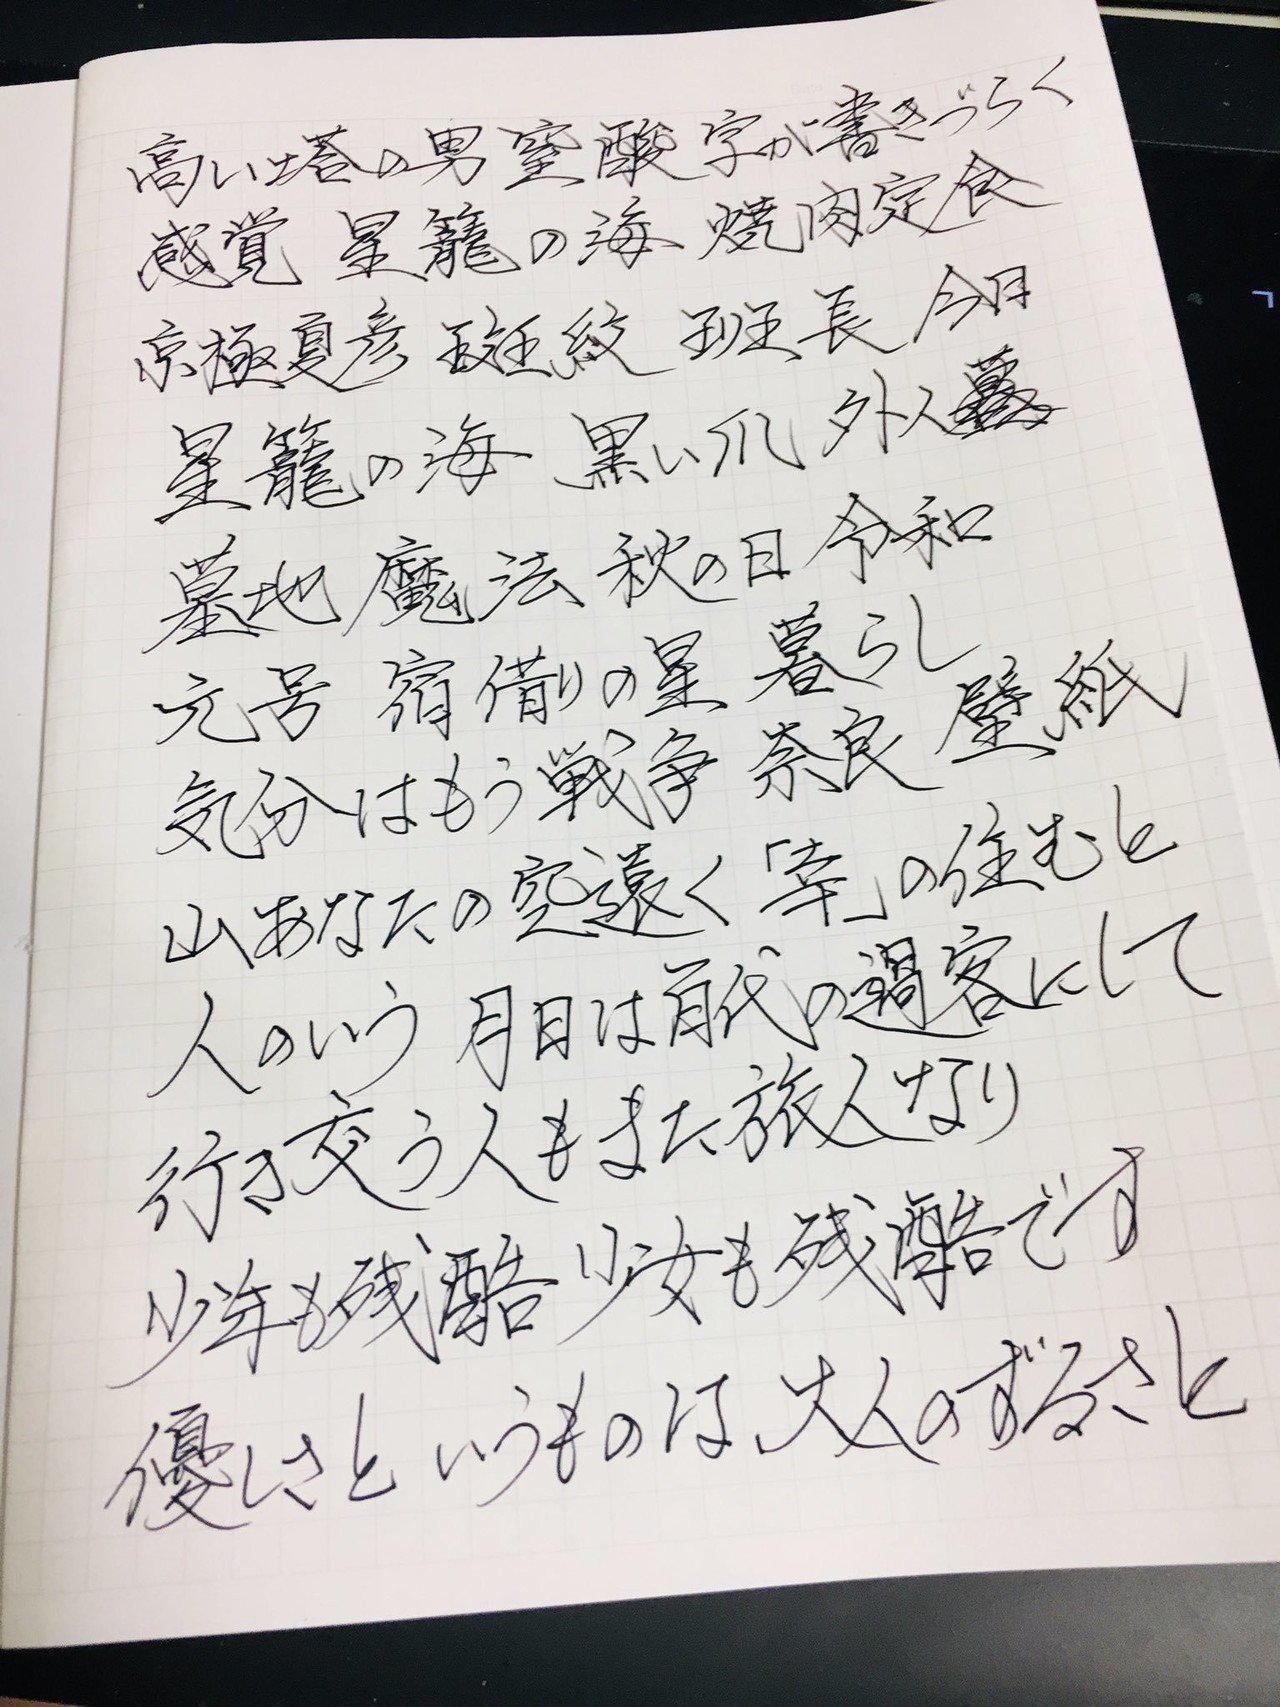 高い塔の男 窒酸 字が書きづらく
感覚 星籠の海 焼肉定食
京極夏彦 斑紋 班長 今月
星籠の海 黒い爪 外人
墓地 魔法 秋の日 令和
元号 宿借りの星 暮らし
気分はもう戦争 奈良 壁紙
山あなたの空遠く「幸」の住むと
人のいう 月日は百代の過客にして
行き交う人もまた旅人なり
少年も残酷 少女も残酷です
優しさというものは、大人のずるさと